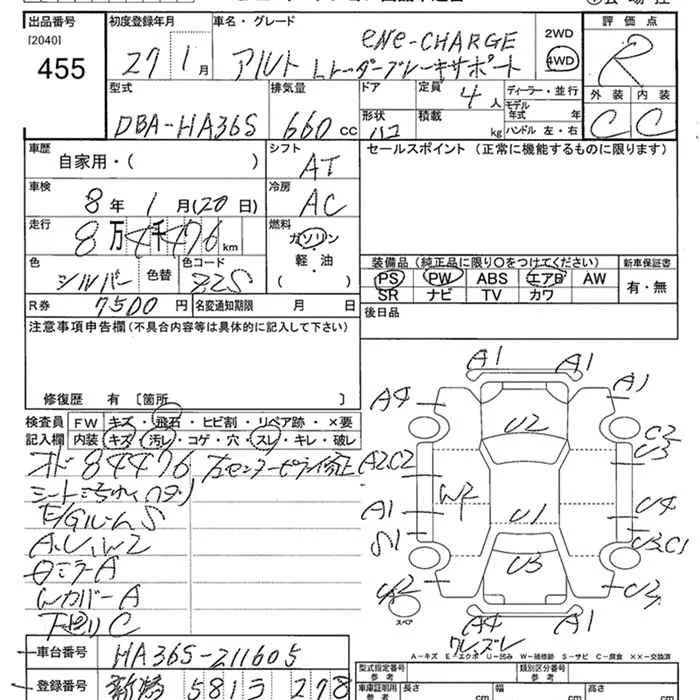 出品番号
[2040]
455
初度登録年月
27 1 月
車名 ・ グレード
ene-CHARGE
アルト Lレーダーブレーキサポート
2WD
4WD
評 価 点
R
外 装 内 装
C C
型式
DBA-HA36S
排気量
660 cc
ドア
形状
ハコ
定員
4 人
積載
kg
ディーラー・並行
モデル
年式 年
ハンドル 左・右
車歴
自家用・( )
シフト
AT
セールスポイント (正常に機能するものに限ります)
車検
8 年 1 月 (20 日)
冷房
AC
走行
8 万 4 千 476 km
燃料
ガソリン
軽・油
( ・ )
色
シルバー
色替
色コード
Z2S
装備品 (純正品に限り○をつけてください)
新車保証書
PS PW ABS エアB AW
SR ナビ TV カワ
有・無
R券 7500 円
名変通知期限 月 日
後日品
注意事項申告欄 (不具合内容等は具体的に記入して下さい)
修復歴 有 [箇所 ]
検査員 FW キズ・飛石・ヒビ割・リペア跡・×要
記入欄 内装 キズ・汚レ・コゲ・穴・スレ・キレ・破レ
オド 84476 右センターピラー修正
E/Gルーム S
A.U.W2
Wカバー A
下廻り C
A1 A1
A4 A1
U2
C2
U3
A2.C2
W2
A1
U1
U4
S1
U3.C1
U3
A2
U2
スペア
A4 A1
A-キズ E-エクボ U-凹み W-補修跡 S-サビ C-腐食 XX-交換済
車台番号 HA36S-211605
登録番号 新潟 581 ラ 278
型式指定番号
参考
類別区分番号
参考
車庫証明用
参考
長さ cm
幅 cm
高さ cm